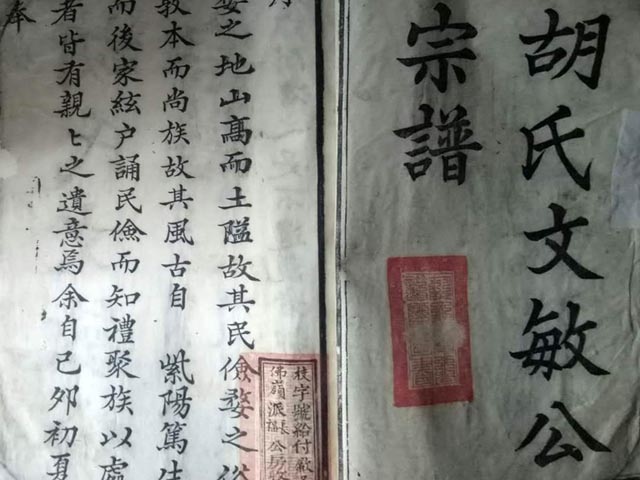 胡氏文敏公
宗譜
婺之地山高而土隘故其民儉婺之俗
敦本而尚族故其風古自 紫陽篤生
而後家絃户誦民儉而知禮聚族以處
者皆有親〻之遺意焉余自己夘初夏
奉
枝字號給付歙
佛嶺派
公房